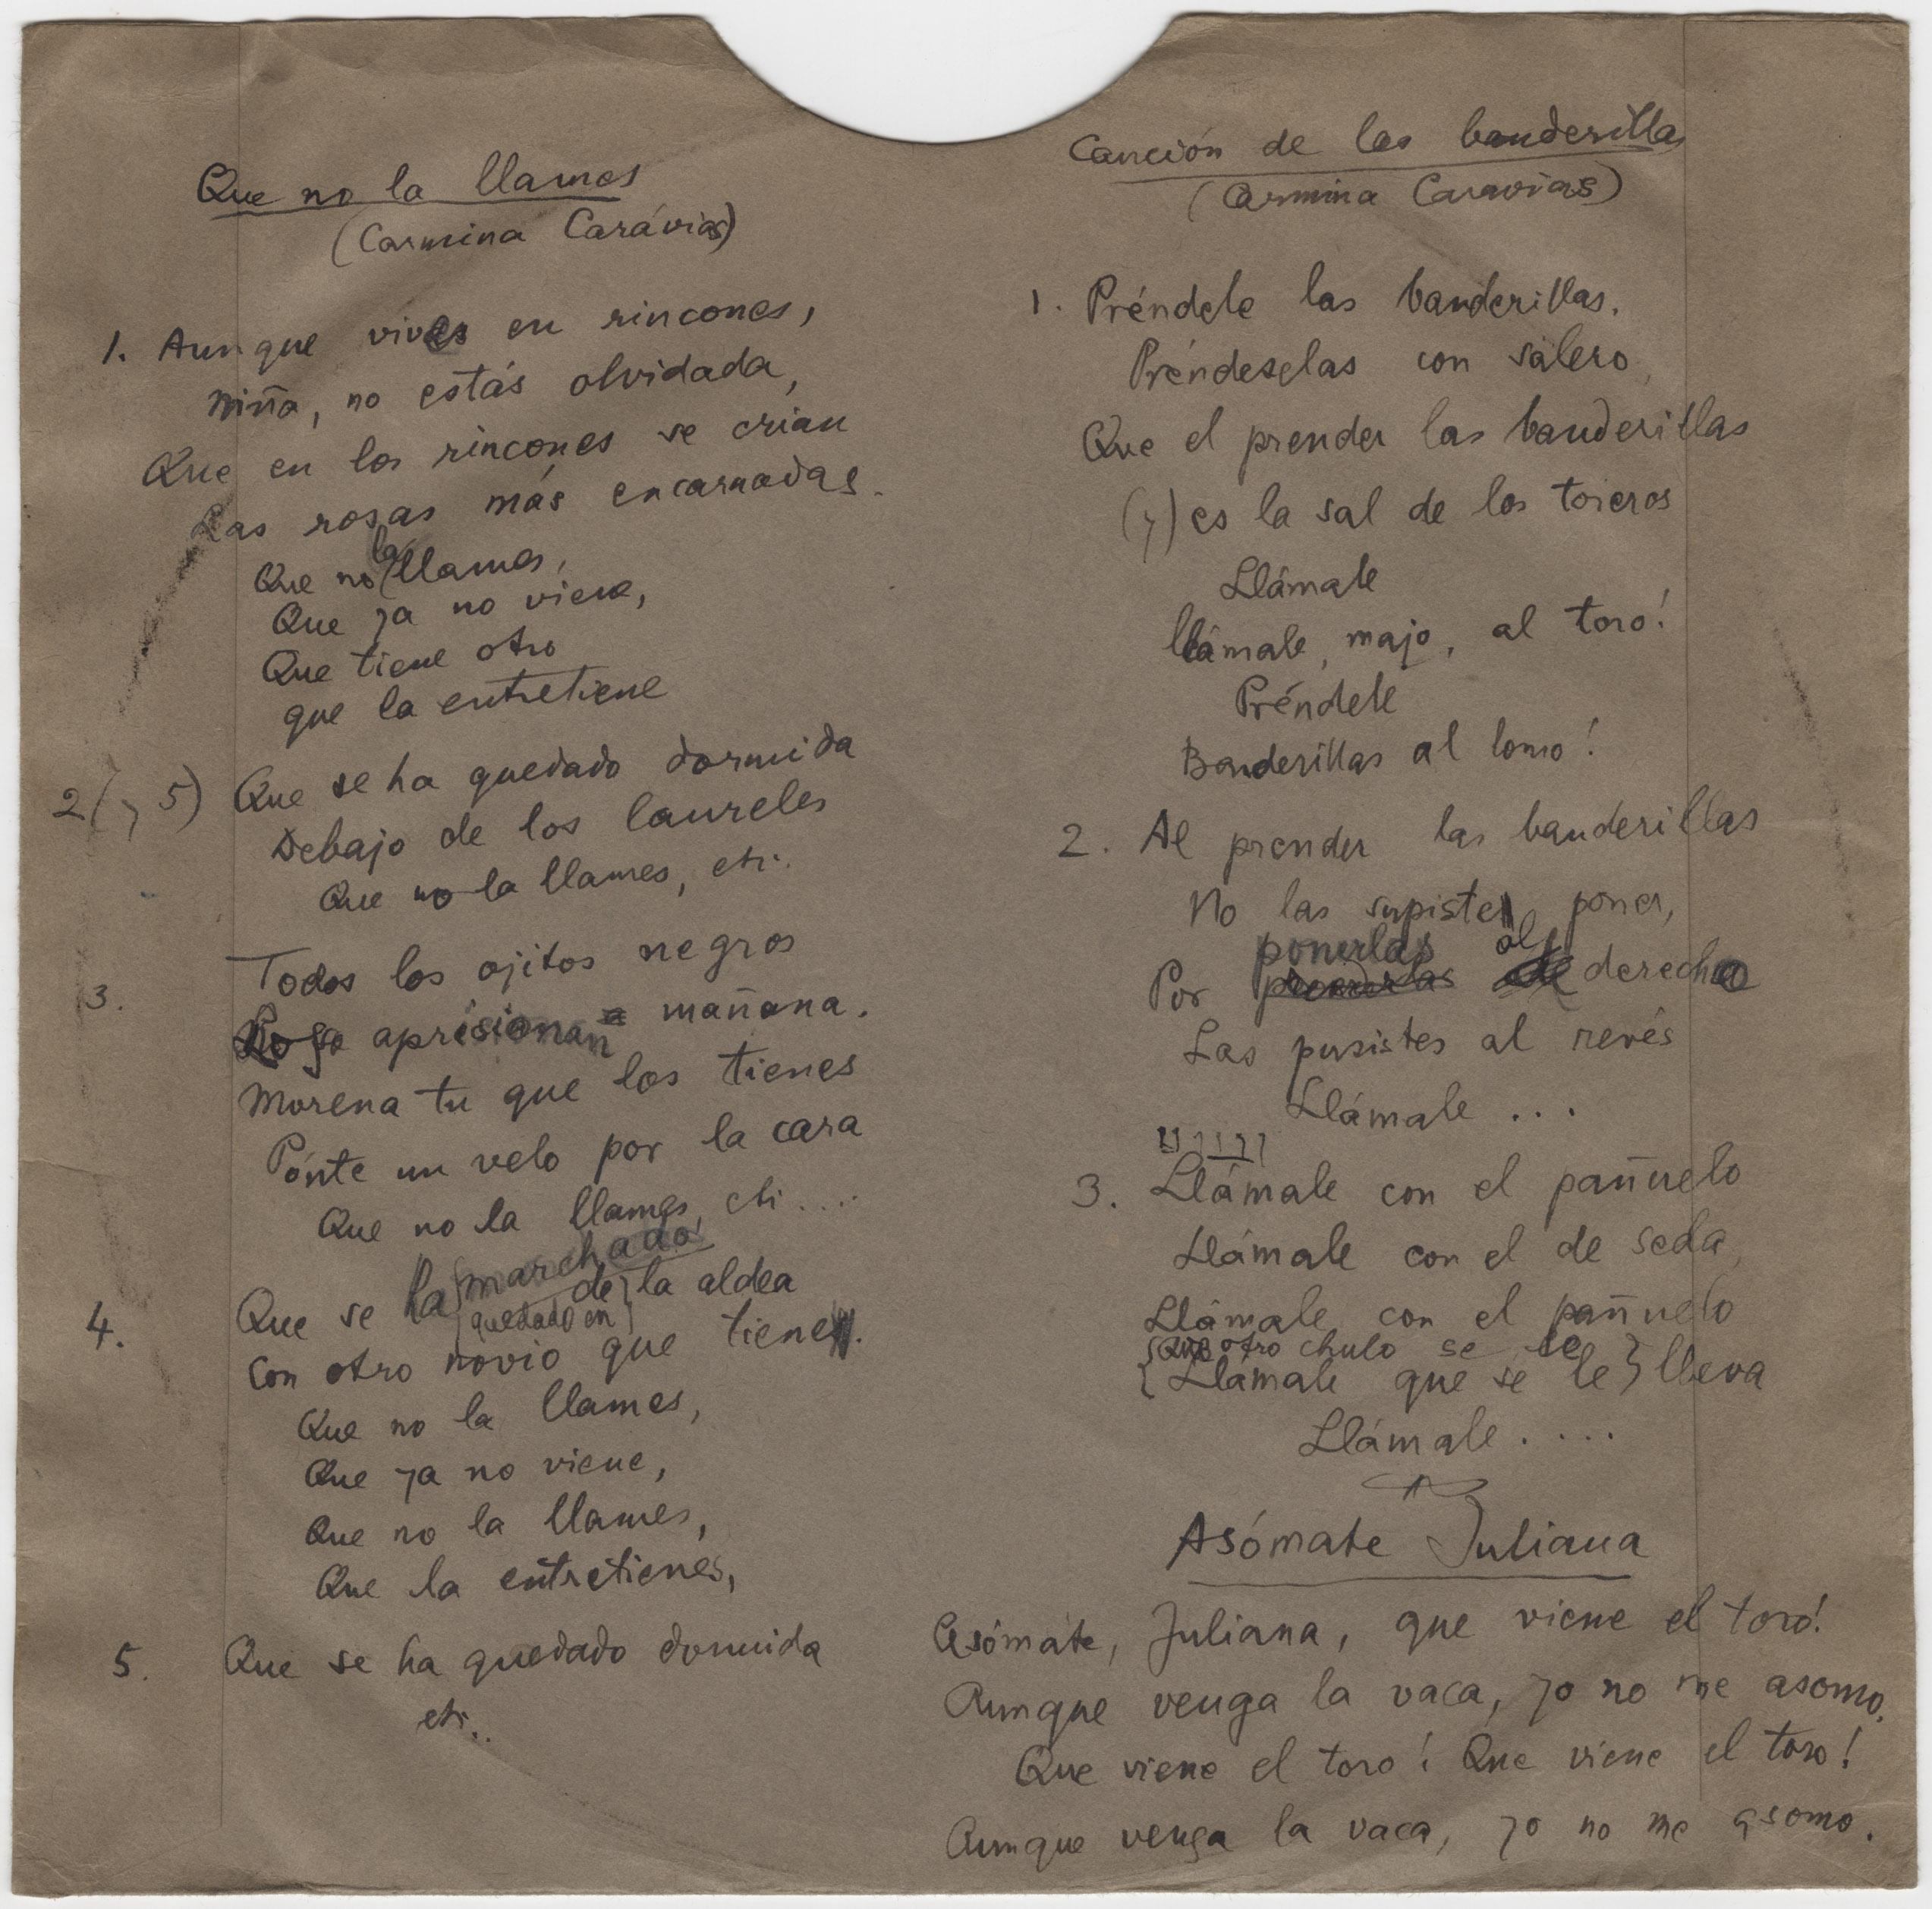 Que no la llames
(Carmina Carávias)
1. Aunque vives en rincones,
niña, no estás olvidada,
Que en los rincones se crian
Las rosas más encarnadas.
Que no la llames,
Que ya no viene,
Que tiene otro
que la entretiene
2 (y 5) Que se ha quedado dormida
Debajo de los laureles
Que no la llames, etc..
3. Todos los ojitos negros
aprisionan mañana.
Morena tu que los tienes
Pónte un velo por la cara
Que no la llames, etc....
4. Que se ha {marchado de} la aldea
{quedado en}
Con otro novio que tiene.
Que no la llames,
Que ya no viene,
Que no la llames,
Que la entretienes,
5. Que se ha quedado dormida
etc..
Canción de las banderillas
(Carmina Caravias)
1. Préndele las banderillas,
Préndeselas con salero,
Que el prender las banderillas
(y) es la sal de los toreros
Llámale
llámale, majo, al toro!
Préndele
Banderillas al lomo!
2. Al prender las banderillas
No las supiste poner,
Por ponerlas al derecho
Las pusistes al revés
Llámale...
3. Llámale con el pañuelo
Llámale con el de seda,
Llámale con el pañuelo
{Que otro chulo se le
{Llámale que se le} lleva
Llámale....
Asómate Juliana
Asómate, Juliana, que viene el toro!
Aunque venga la vaca, yo no me asomo.
Que viene el toro! Que viene el toro!
Aunque venga la vaca, yo no me asomo.